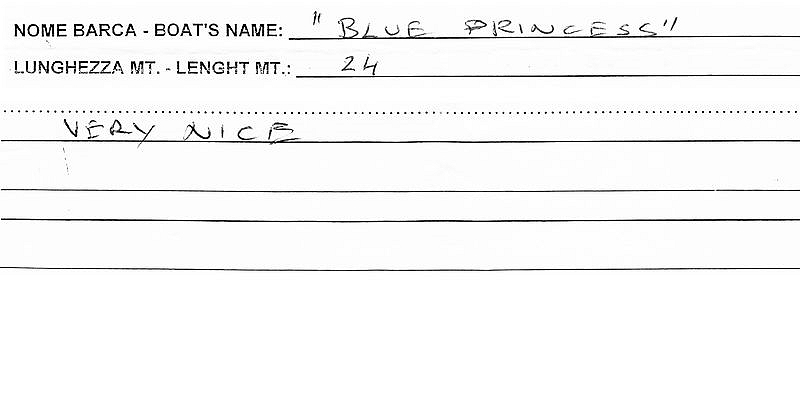 NOME BARCA - BOAT'S NAME: "BLUE PRINCESS"
LUNGHEZZA MT. - LENGHT MT.: 24
VERY NICE